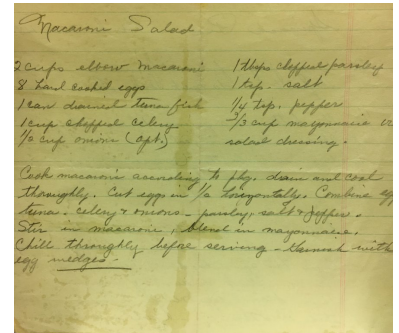 Macaroni Salad
2 cups elbow macaroni
8 hard cooked eggs
1 can drained tuna fish
1 cup chopped celery
cup onion (opt.)
1 tbsp chopped parsley
1 tsp. salt
1/4 tsp. pepper
2/3 cup mayonnaise
salad dressing.
Cook macaroni according to pkg. drain and cool
throughly. Cut eggs in 1/2 horizontally. Combine egg
tuna - celery & onions - parsley, salt & pepper.
Stir in macaroni, blend in mayonnaise.
Chill throughly before serving - Garnish with
egg wedges -